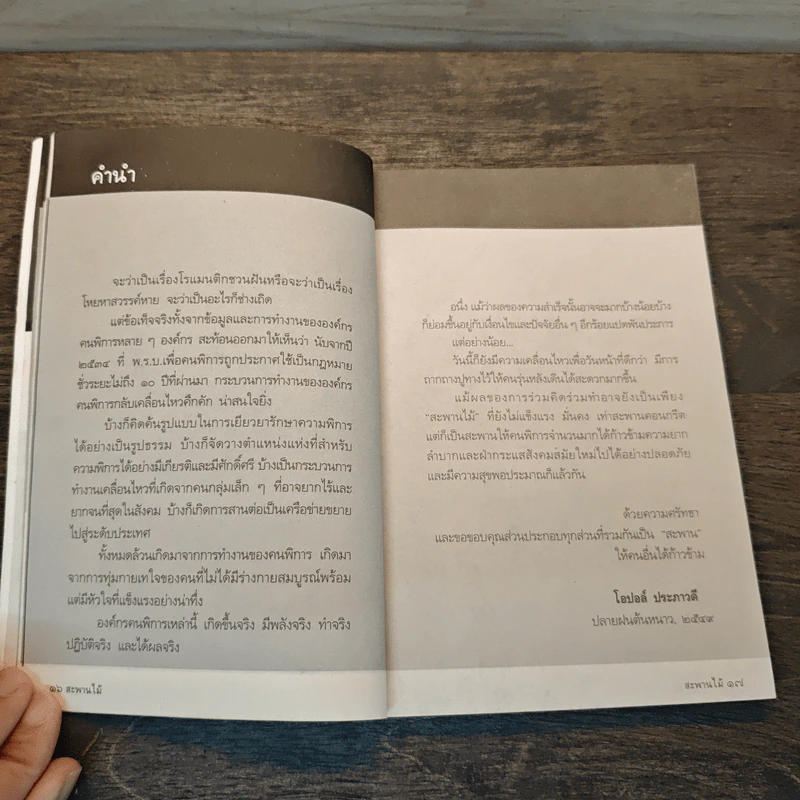 คำนำ
จะว่าเป็นเรื่องโรแมนติกชวนฝันหรือจะว่าเป็นเรื่อง
โหยหาสวรรค์หาย จะว่าเป็นอะไรก็ช่างเถิด
แต่ข้อเท็จจริงทั้งจากข้อมูลและการทำงานขององค์กร
คนพิการหลาย ๆ องค์กร สะท้อนออกมาให้เห็นว่า นับจากปี
๒๕๓๔ ที่ พ.ร.บ.เพื่อคนพิการถูกประกาศใช้เป็นกฎหมาย
ชั่วระยะไม่ถึง ๑๐ ปีที่ผ่านมา กระบวนการทำงานขององค์กร
คนพิการกลับเคลื่อนไหวคึกคัก น่าสนใจยิ่ง
บ้างก็คิดค้นรูปแบบในการเยียวยารักษาความพิการ
ได้อย่างเป็นรูปธรรม บ้างก็จัดวางตำแหน่งแห่งที่สำหรับ
ความพิการได้อย่างมีเกียรติและมีศักดิ์ศรี บ้างเป็นกระบวนการ
ทำงานเคลื่อนไหวที่เกิดจากคนกลุ่มเล็ก ๆ ที่อาจยากไร้และ
ยากจนที่สุดในสังคม บ้างก็เกิดการสานต่อเป็นเครือข่ายขยาย
ไปสู่ระดับประเทศ
ทั้งหมดล้วนเกิดมาจากการทำงานของคนพิการ เกิดมา
จากการทุ่มกายเทใจของคนที่ไม่ได้มีร่างกายสมบูรณ์พร้อม
แต่มีหัวใจที่แข็งแรงอย่างน่าทึ่ง
องค์กรคนพิการเหล่านี้ เกิดขึ้นจริง มีพลังจริง ทำจริง
ปฏิบัติจริง และได้ผลจริง
๑๖ สะพานไม้
อนึ่ง แม้ว่าผลของความสำเร็จนั้นอาจจะมากบ้างน้อยบ้าง
ก็ย่อมขึ้นอยู่กับเงื่อนไขและปัจจัยอื่น ๆ อีกร้อยแปดพันประการ
แต่อย่างน้อย...
วันนี้ก็ยังมีความเคลื่อนไหวเพื่อวันหน้าที่ดีกว่า มีการ
ถากถางปูทางไว้ให้คนรุ่นหลังเดินได้สะดวกมากขึ้น
แม้ผลของการร่วมคิดร่วมทำอาจยังเป็นเพียง
“สะพานไม้” ที่ยังไม่แข็งแรง มั่นคง เท่าสะพานคอนกรีต
แต่ก็เป็นสะพานให้คนพิการจำนวนมากได้ก้าวข้ามความยาก
ลำบากและฝ่ากระแสสังคมสมัยใหม่ไปได้อย่างปลอดภัย
และมีความสุขพอประมาณก็แล้วกัน
ด้วยความศรัทธา
และขอขอบคุณส่วนประกอบทุกส่วนที่รวมกันเป็น “สะพาน”
ให้คนอื่นได้ก้าวข้าม
โอปอล์ ประภาวดี
ปลายฝนต้นหนาว, ๒๕๔๙
สะพานไม้ ๑๗